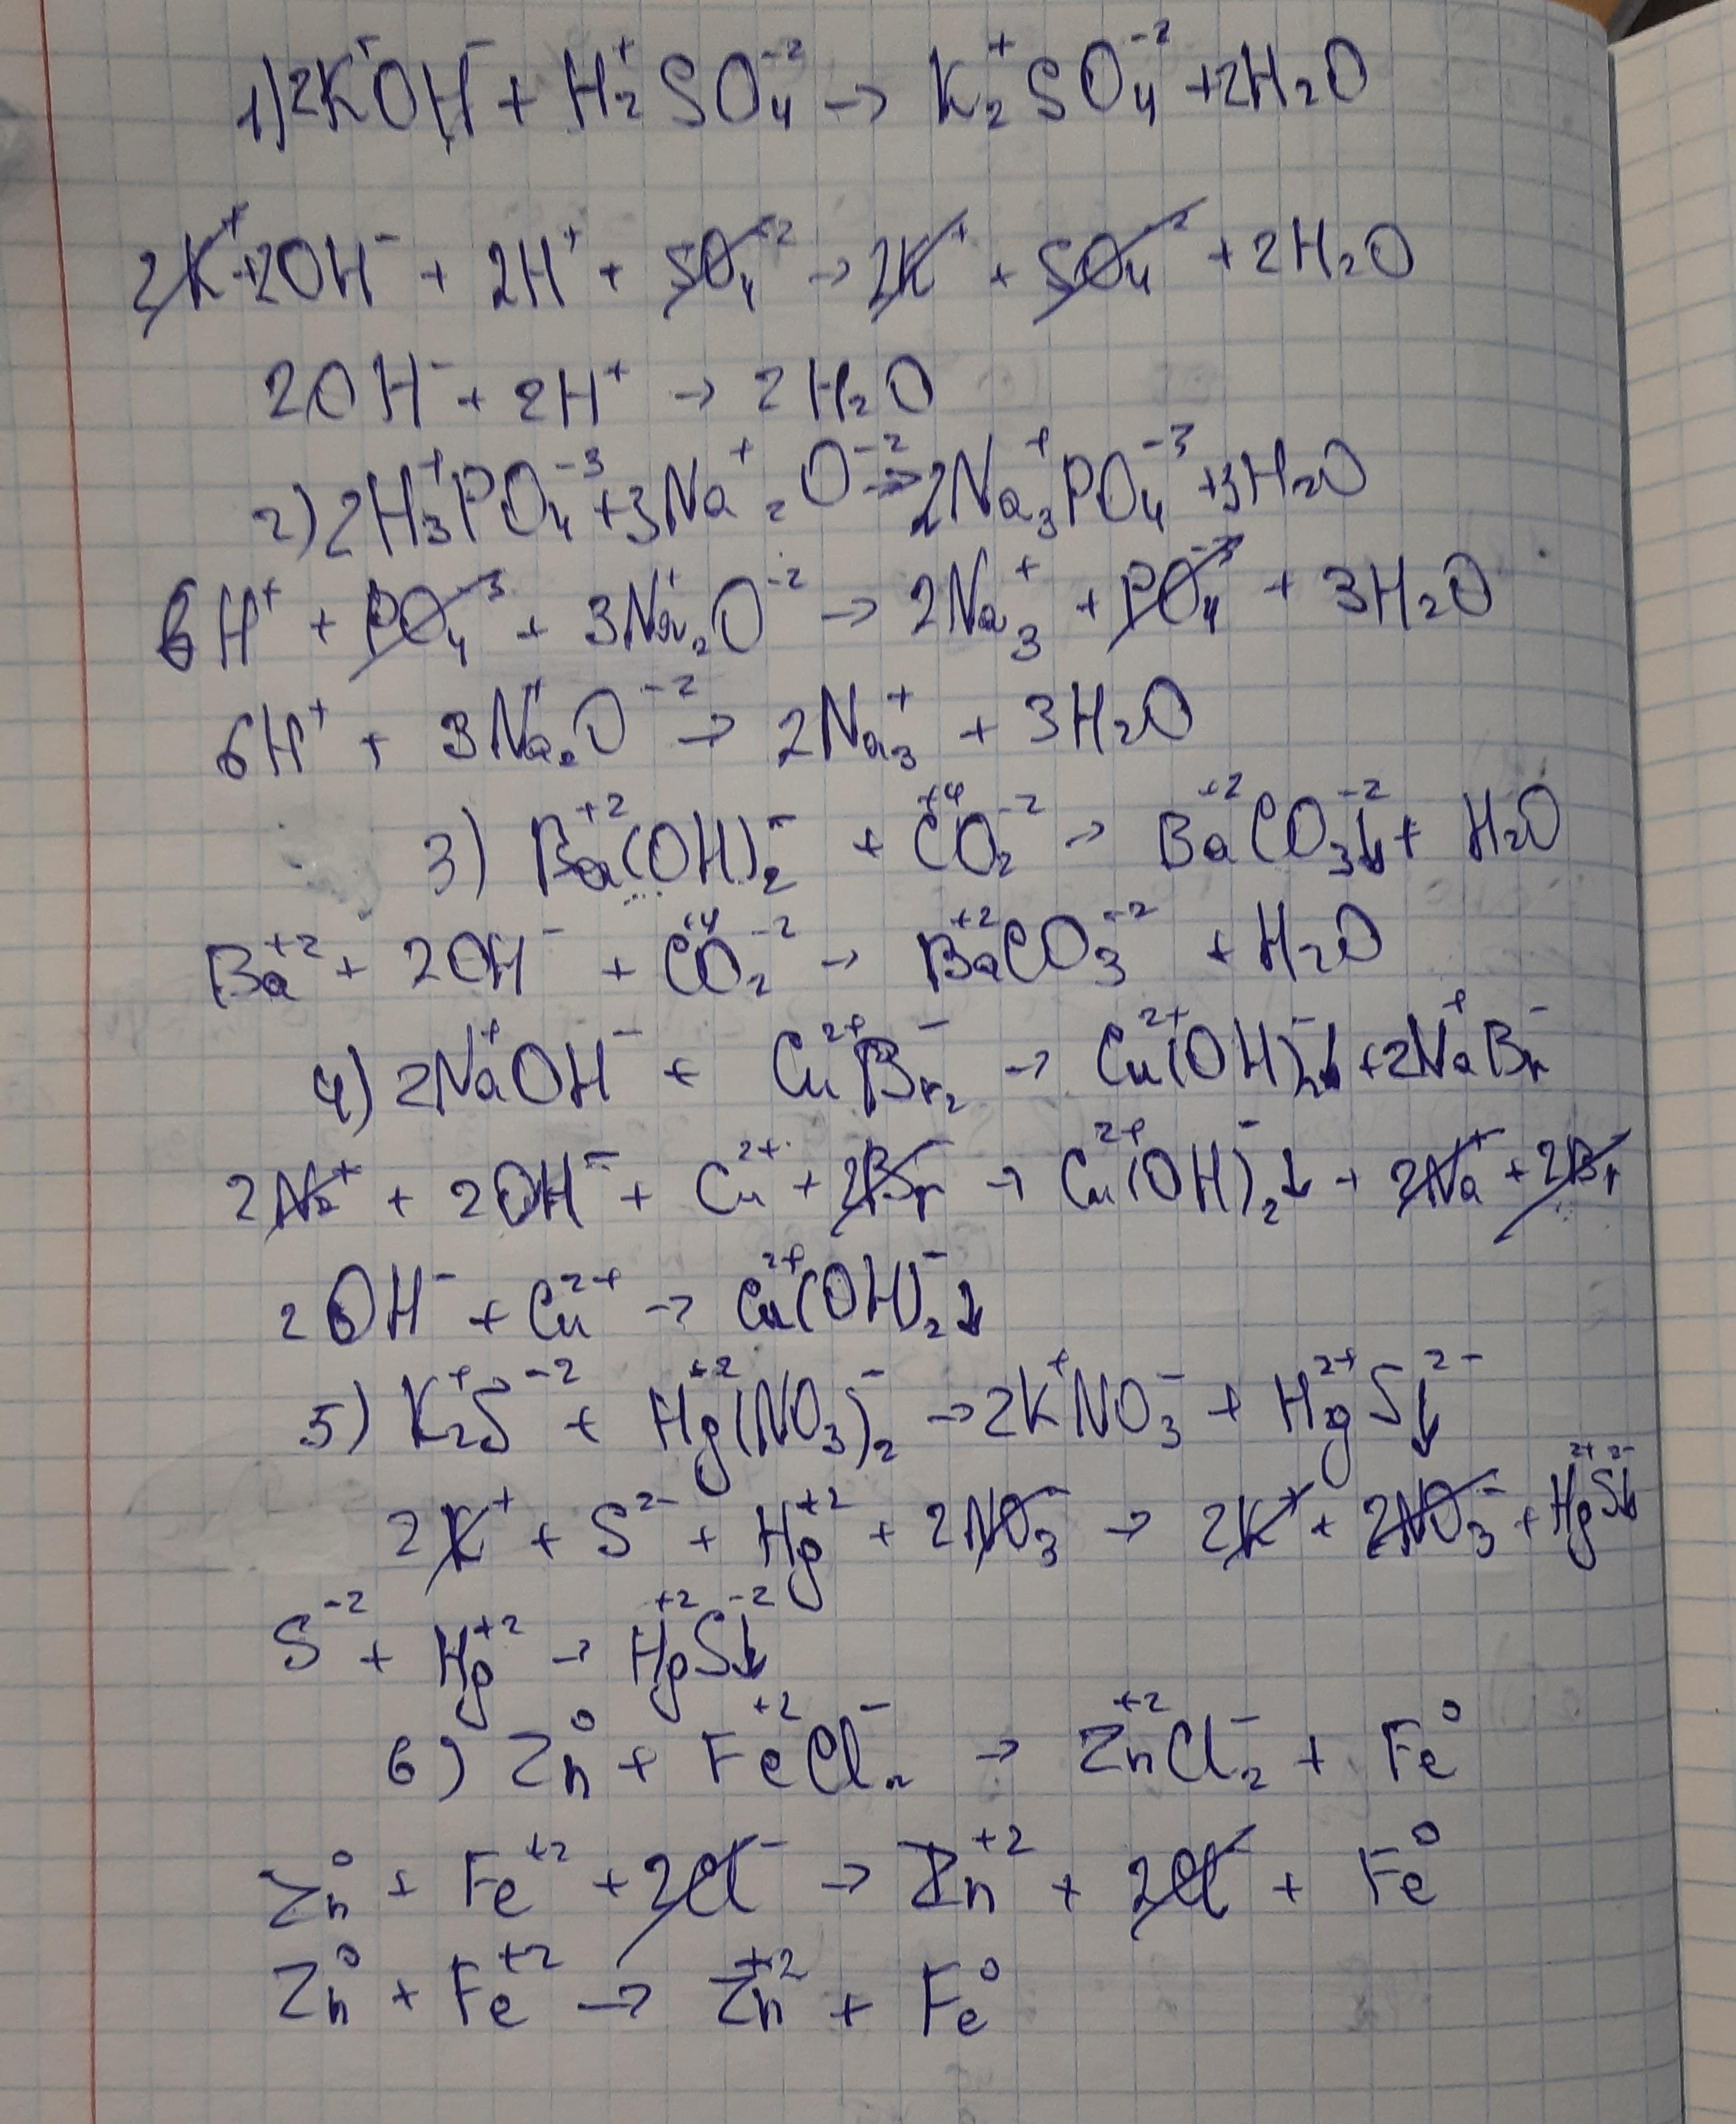 1) 2K⁺OH⁻ + H₂⁺SO₄⁻² → K₂⁺SO₄⁻² + 2H₂O
2K⁺ + 2OH⁻ + 2H⁺ + SO₄⁻² → 2K⁺ + SO₄⁻² + 2H₂O
2OH⁻ + 2H⁺ → 2H₂O
2) 2H₃⁺PO₄⁻³ + 3Na⁺₂O⁻² → 2Na₃⁺PO₄⁻³ + 3H₂O
6H⁺ + PO₄⁻³ + 3Na⁺₂O⁻² → 2Na₃⁺ + PO₄⁻³ + 3H₂O
6H⁺ + 3Na⁺₂O⁻² → 2Na₃⁺ + 3H₂O
3) Ba⁺²(OH)₂⁻ + C⁺⁴O₂⁻² → Ba⁺²CO₃⁻²↓ + H₂O
Ba⁺² + 2OH⁻ + C⁺⁴O₂⁻² → Ba⁺²CO₃⁻² + H₂O
4) 2Na⁺OH⁻ + Cu²⁺Br₂⁻ → Cu²⁺(OH)₂⁻↓ + 2Na⁺Br⁻
2Na⁺ + 2OH⁻ + Cu²⁺ + 2Br⁻ → Cu²⁺(OH)₂⁻↓ + 2Na⁺ + 2Br⁻
2OH⁻ + Cu²⁺ → Cu²⁺(OH)₂⁻↓
5) K₂⁺S⁻² + Hg⁺²(NO₃)₂⁻ → 2K⁺NO₃⁻ + Hg²⁺S²⁻↓
2K⁺ + S²⁻ + Hg⁺² + 2NO₃⁻ → 2K⁺ + 2NO₃⁻ + Hg²⁺S²⁻↓
S⁻² + Hg⁺² → Hg⁺²S⁻²↓
6) Zn⁰ + Fe⁺²Cl₂⁻ → Zn⁺²Cl₂⁻ + Fe⁰
Zn⁰ + Fe⁺² + 2Cl⁻ → Zn⁺² + 2Cl⁻ + Fe⁰
Zn⁰ + Fe⁺² → Zn⁺² + Fe⁰